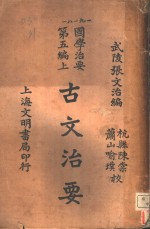 一八一八一
武陵張文治編
杭縣陳棠
蕭山喻璞 校
國學治要
第五編上
古文治要
上海文明書局印行